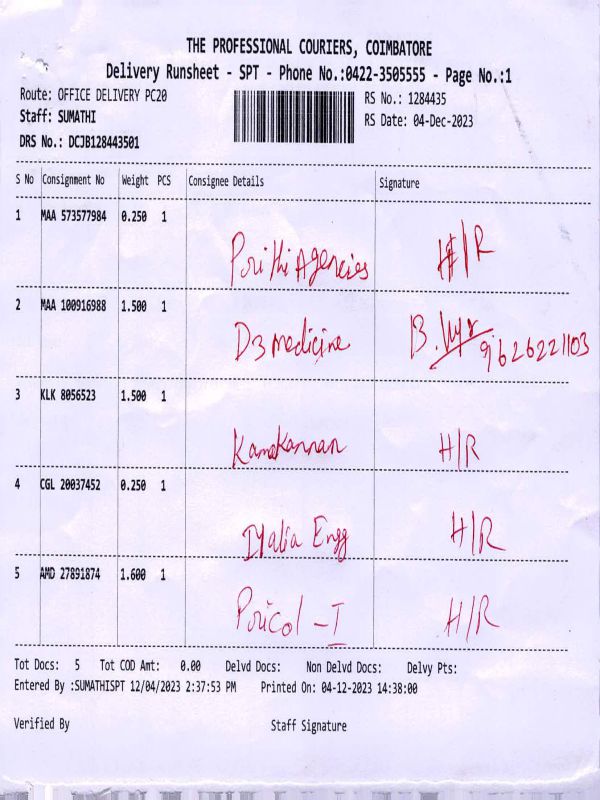 THE PROFESSIONAL COURIERS, COIMBATORE
Delivery Runsheet - SPT - Phone No.:0422-3505555 - Page No.:1
Route: OFFICE DELIVERY PC20 RS No.: 1284435
Staff: SUMATHI RS Date: 04-Dec-2023
DRS No.: DCJB128443501
S No Consignment No Weight PCS Consignee Details Signature
1 MAA 573577984 0.250 1
Agencies H/R
2 MAA 100916988 1.500 1
D3 medicine B. 9626221103
3 KLK 8056523 1.500 1
H/R
4 CGL 20037452 0.250 1
Engg H/R
5 AMD 27891874 1.600 1
Pricol - I H/R
Tot Docs: 5 Tot COD Amt: 0.00 Delvd Docs: Non Delvd Docs: Delvy Pts:
Entered By :SUMATHISPT 12/04/2023 2:37:53 PM Printed On: 04-12-2023 14:38:00
Verified By Staff Signature